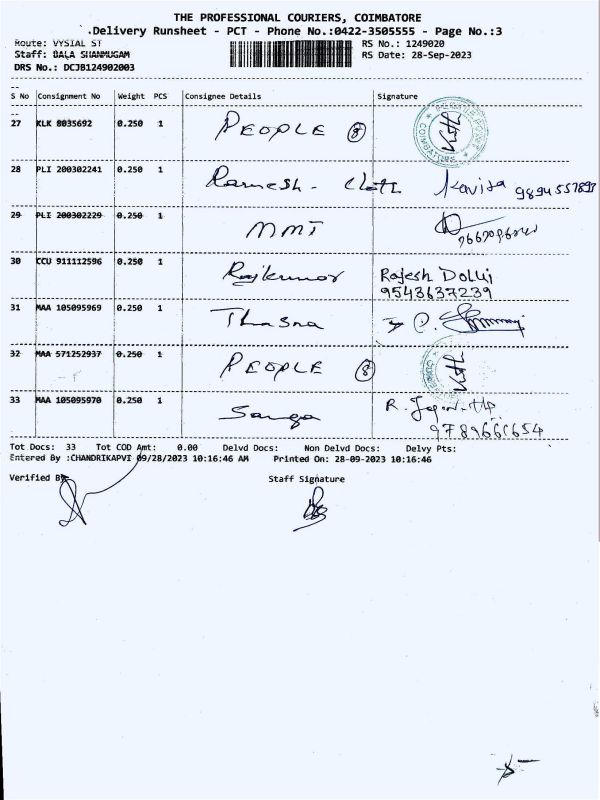 THE PROFESSIONAL COURIERS, COIMBATORE
.Delivery Runsheet - PCT - Phone No.:0422-3505555 - Page No.:3
Route: VYSIAL ST RS No.: 1249020
Staff: BALA SHANMUGAM RS Date: 28-Sep-2023
DRS No.: DCJB124902003
S No Consignment No Weight PCS Consignee Details Signature
27 KLK 8035692 0.250 1 PEOPLE 8
COIMBATORE
28 PLI 200302241 0.250 1 Ramesh - Cloth Kavita 9894557893
29 PLI 200302229 0.250 1 MMT
30 CCU 911112596 0.250 1 Rajkumar Rajesh
9543637239
31 MAA 105095969 0.250 1 Thasna
32 MAA 571252937 0.250 1 PEOPLE 8
33 MAA 105095970 0.250 1 R.
Tot Docs: 33 Tot COD Amt: 0.00 Delvd Docs: Non Delvd Docs: Delvy Pts:
Entered By :CHANDRIKAPVI 09/28/2023 10:16:46 AM Printed On: 28-09-2023 10:16:46
Verified By Staff Signature